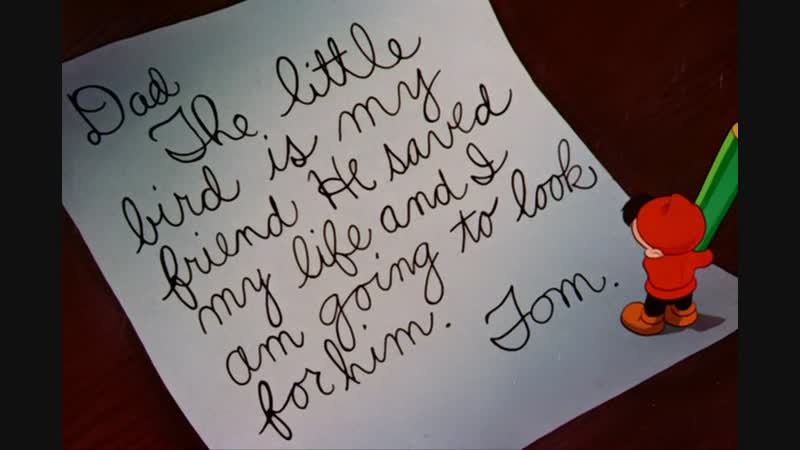 Dad
The little
bird is my
friend He saved
my life and I
am going to look
for him. Tom.